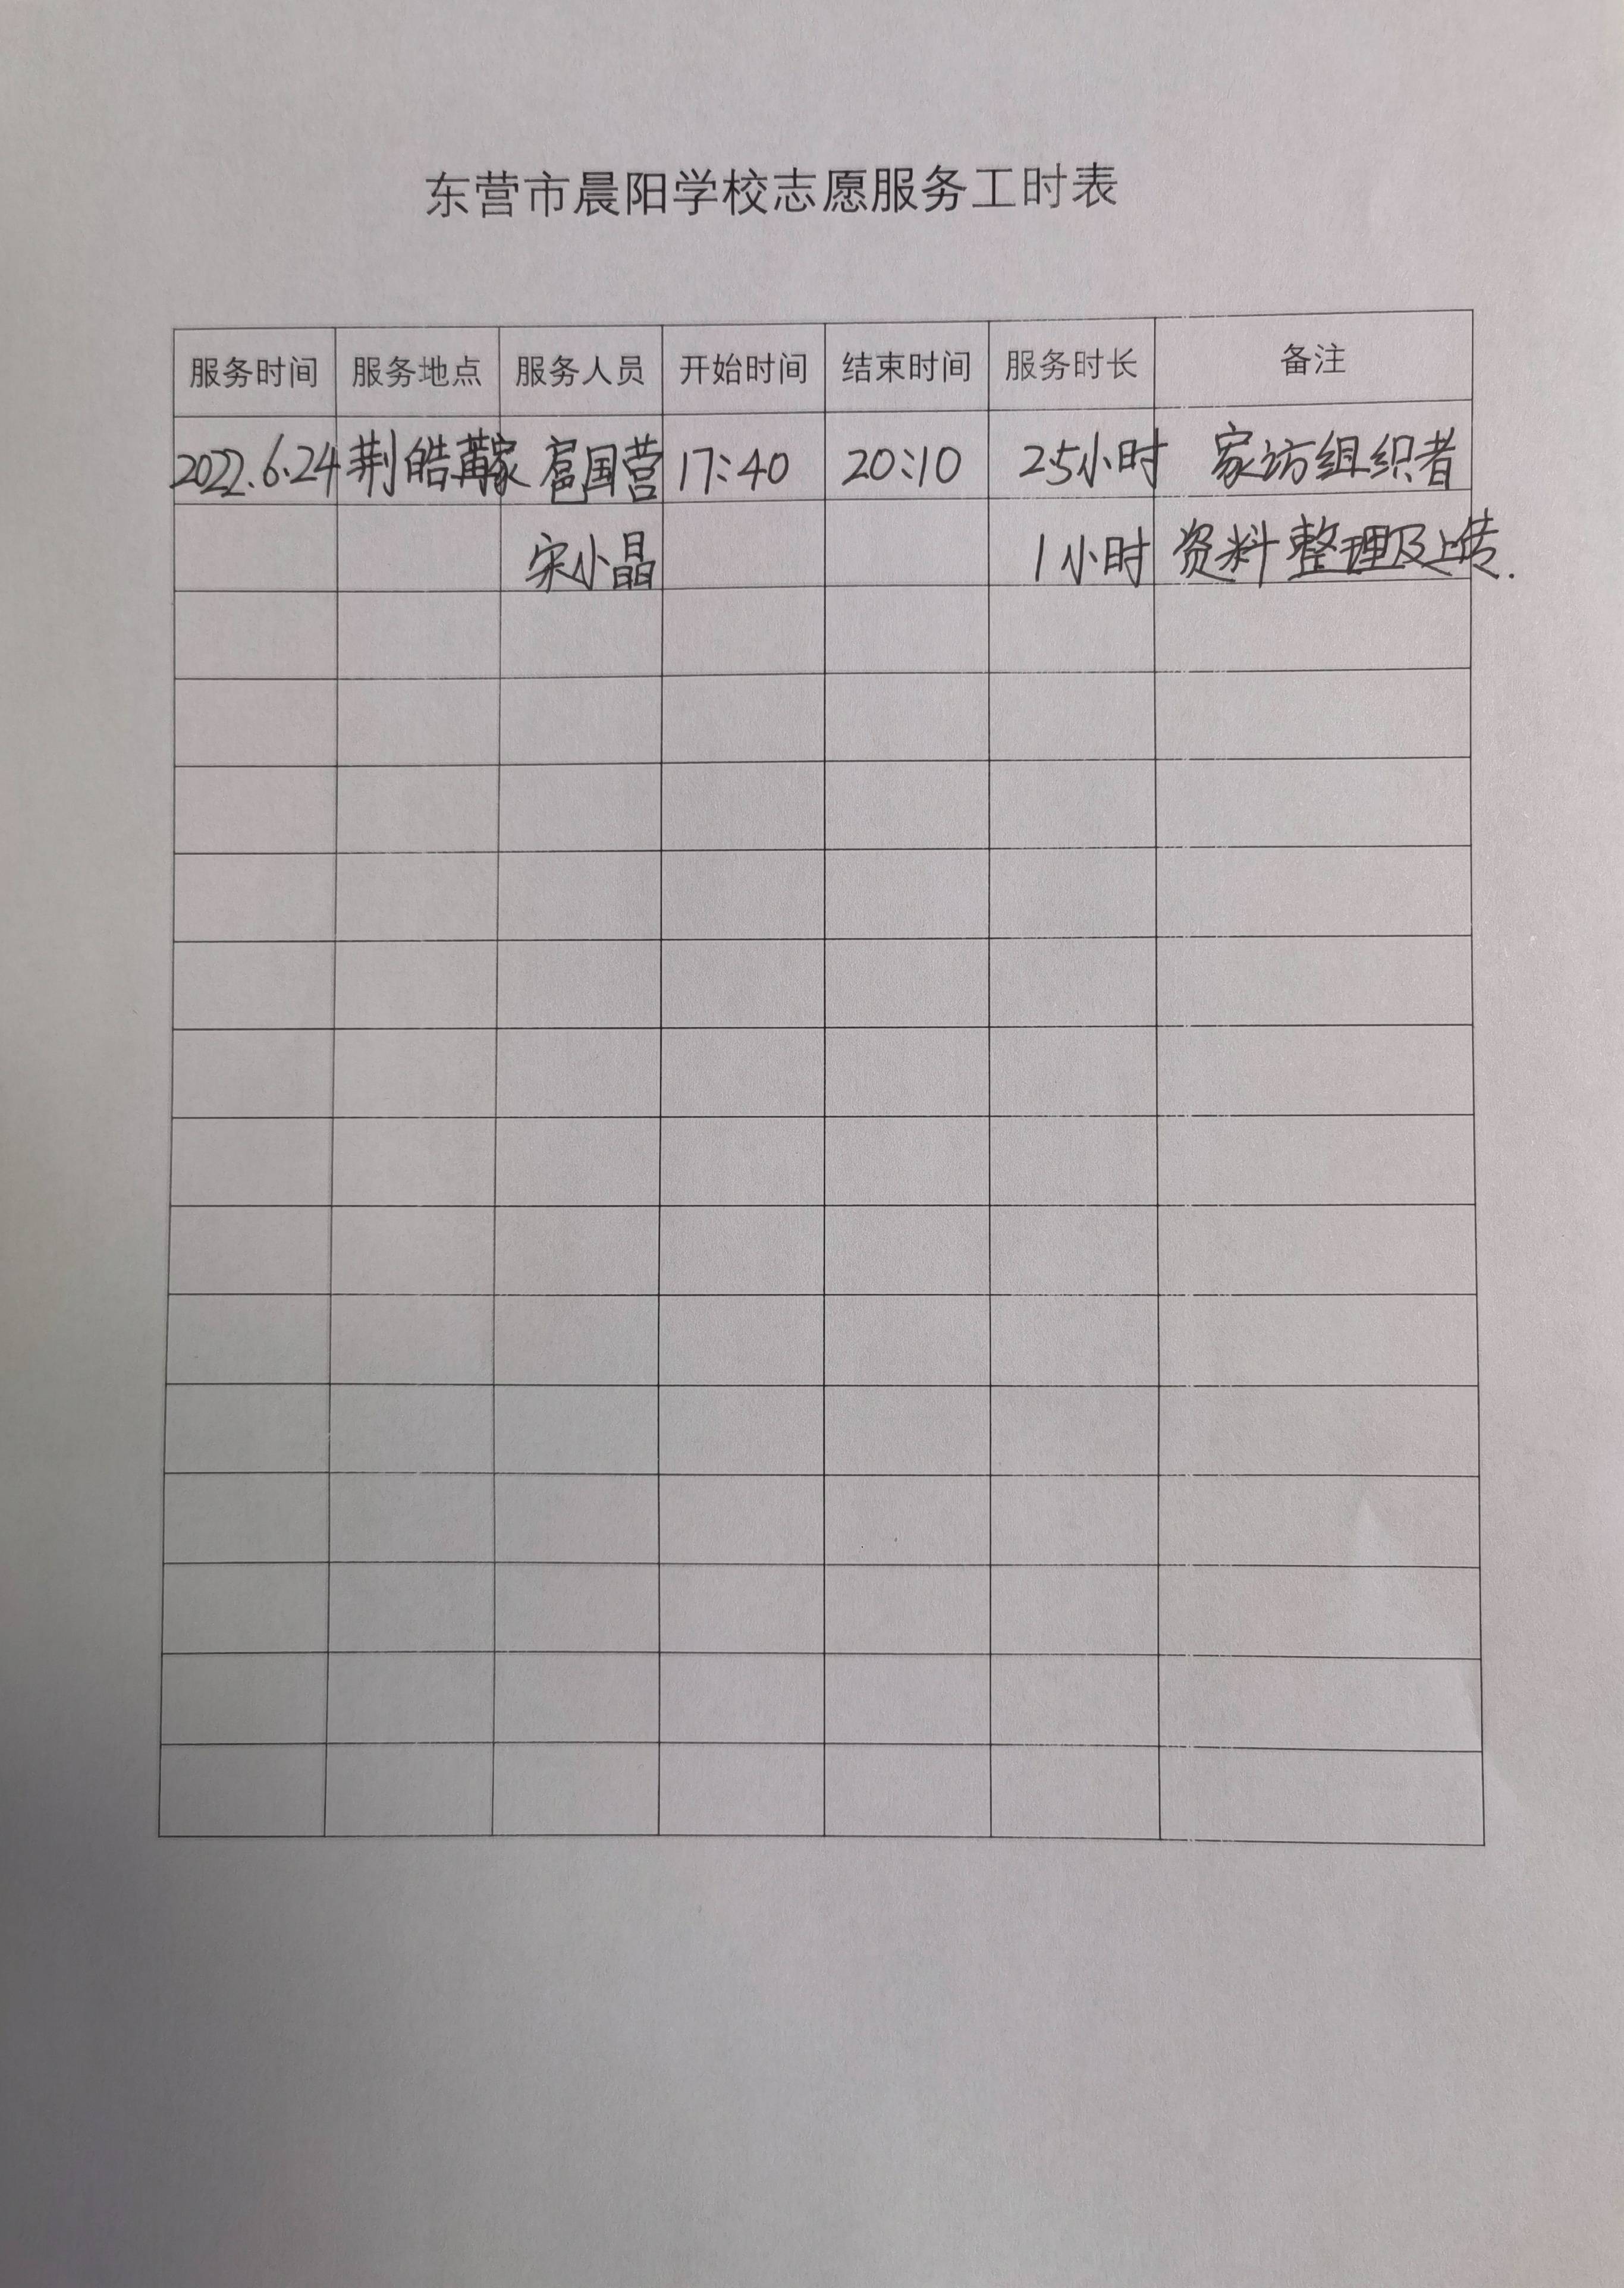 东营市晨阳学校志愿服务工时表
服务时间 服务地点 服务人员 开始时间 结束时间 服务时长 备注
2022.6.24 荆皓 家 国营 17:40 20:10 2.5小时 家访组织者
宋小晶 1小时 资料整理及上传.